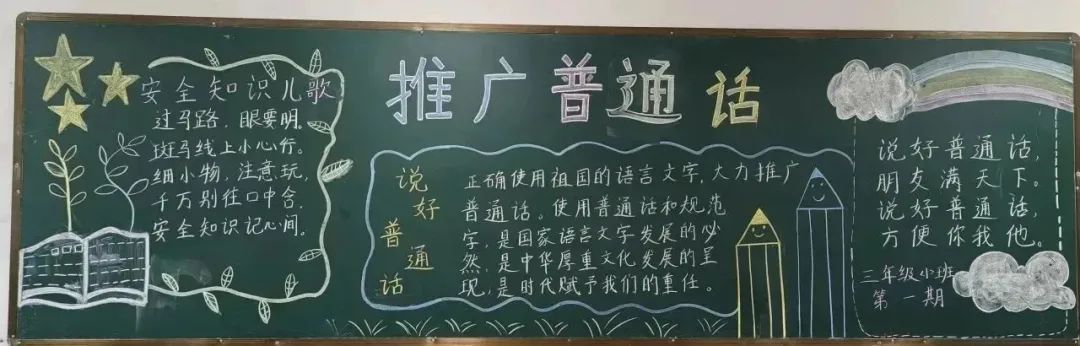 推广普通话
安全知识儿歌
过马路，眼要明。
斑马线上小心行。
细小物，注意玩，
千万别往口中含，
安全知识记心间。
说好普通话
正确使用祖国的语言文字，大力推广
普通话。使用普通话和规范
字，是国家语言文字发展的必
然，是中华厚重文化发展的呈
现，是时代赋予我们的重任。
说好普通话，
朋友满天下。
说好普通话，
方便你我他。
三年级小班
第一期